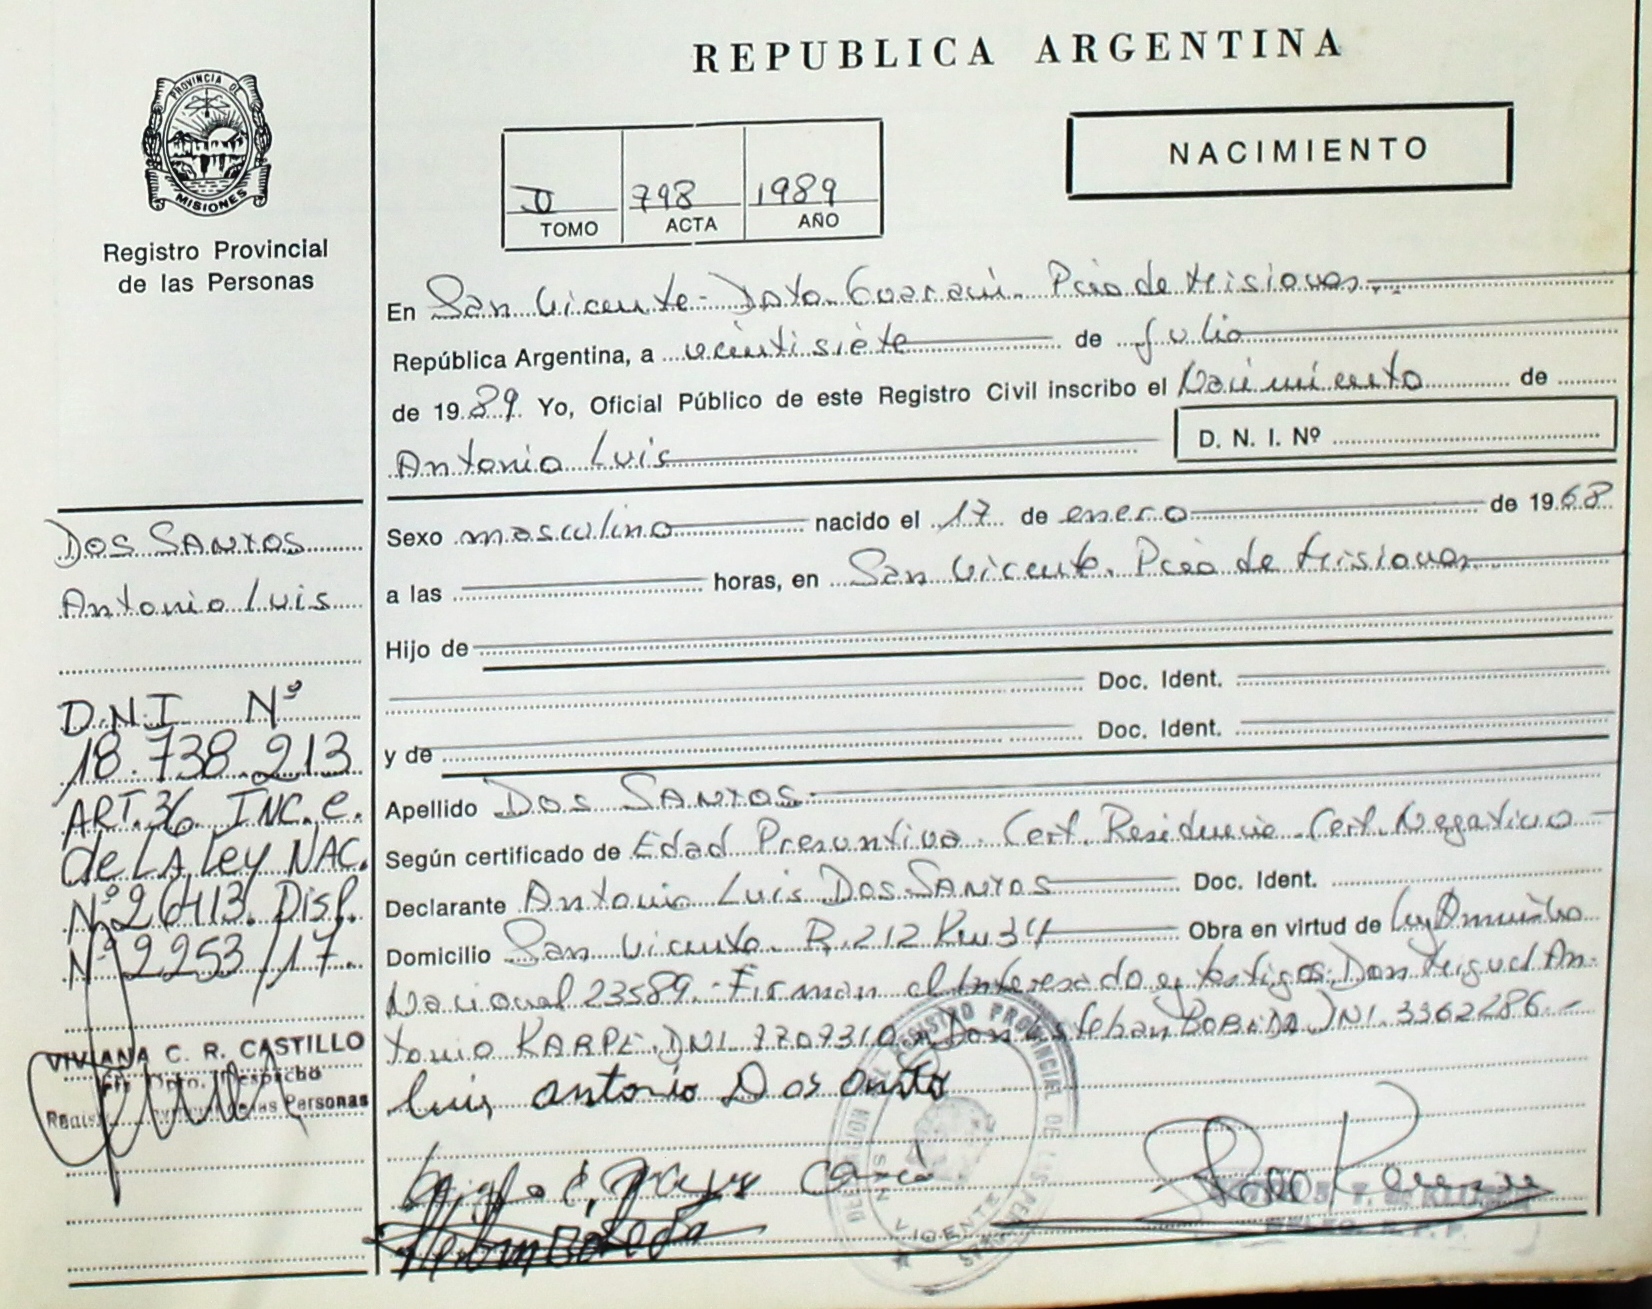 PROVINCIA DE
MISIONES
Registro Provincial
de las Personas
DOS SANTOS
Antonio Luis
D.N.I Nº
18.738.213
ART.36 INC.e.
de LA Ley NAC.
Nº 26413. Disp.
Nº 2253/17.
VIVIANA C. R. CASTILLO
Dpto. Despacho
las Personas
REPUBLICA ARGENTINA
NACIMIENTO
798 1989
TOMO ACTA AÑO
En San Vicente- Dpto. Guaraní. Pcia de Misiones.
República Argentina, a veintisiete de Julio
de 1989. Yo, Oficial Público de este Registro Civil inscribo el Nacimiento de
Antonio Luis
D. N. I. Nº
Sexo masculino nacido el 17 de enero de 1968
a las horas, en San Vicente. Pcia de Misiones
Hijo de
Doc. Ident.
y de Doc. Ident.
Apellido DOS SANTOS
Según certificado de Edad Presuntiva. Cert. Residencia. Cert. Negativo
Declarante Antonio Luis DOS SANTOS Doc. Ident.
Domicilio San Vicente. R. 212 Km 34 Obra en virtud de Ley Amnistia
Nacional 23589.- Firman el Interesado y testigos: Don Miguel An-
tonio KARPE. DNI. 7707310 y Don Esteban BOBEDA. DNI. 3362286.-
luis antonio Dos
REGISTRO PROVINCIAL DE LAS
VICENTE